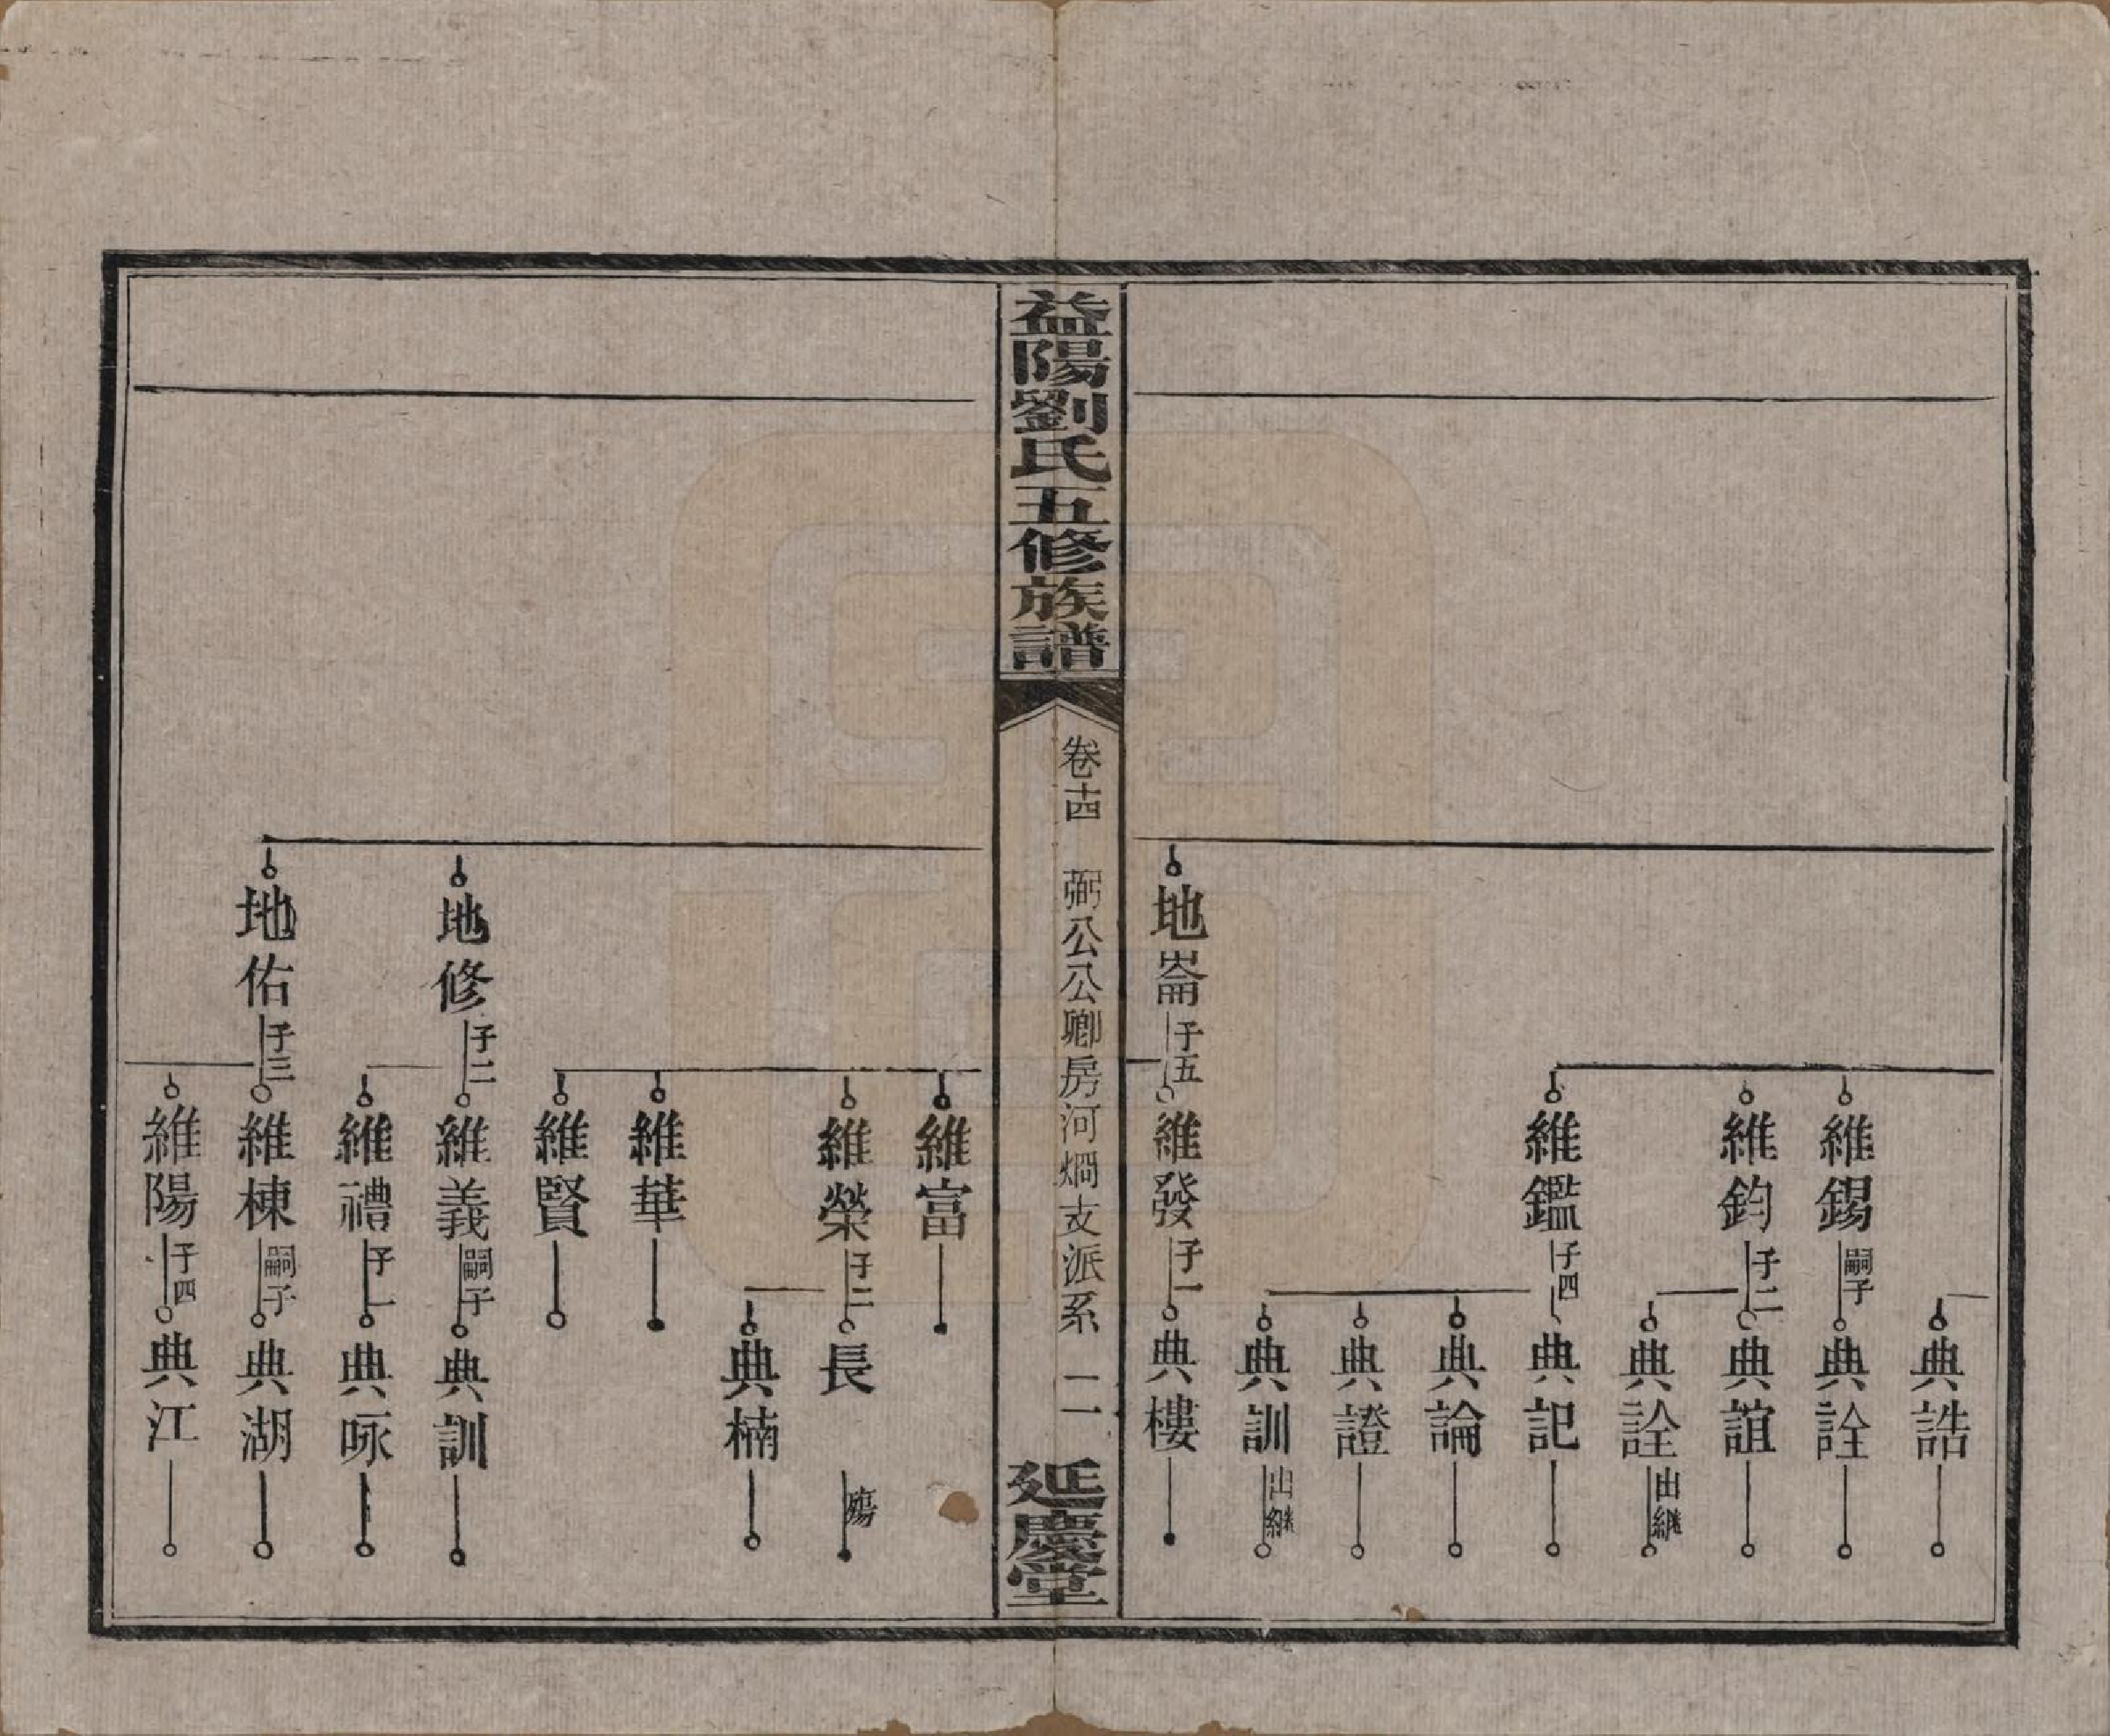 典誥
維錫嗣子典詮
維鈞子二典誼
典詮出継
維鑑子四典記
典論
典證
典訓出継
地崙子五維發子一典樓
益陽劉氏五修族譜
卷十四 弼公公卿房河烱支派系 二 延慶堂
維富
維榮子二長殤
典楠
維華
維賢
地修子二維義嗣子典訓
維禮子一典咏
地佑子三維棟嗣子典湖
維陽子四典江